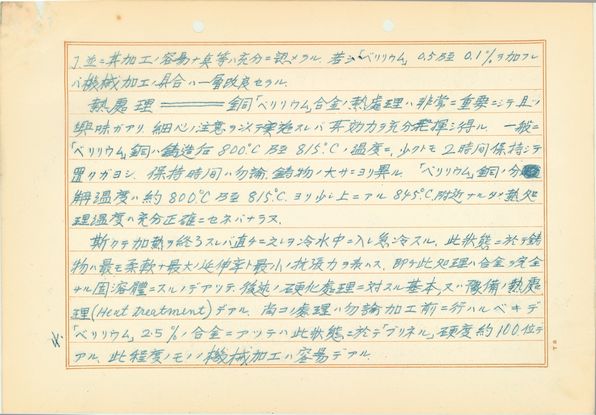 J.並ニ其加工ノ容易ナ点等ハ充分ニ認メラル. 若シ「ベリリウム」0.5乃至0.1%ヲ加フレ
バ機械加工ノ具合ハ一層改良セラル.
熱處理═══銅「ベリリウム」合金ノ熱處理ハ非常ニ重要ニシテ且ツ
興味ガアリ 細心ノ注意ヲ以テ実施スレバ其効力ヲ充分発揮シ得ル. 一般ニ
「ベリリウム」銅ハ鋳造后 800°C乃至 815°C.ノ温度ニ.少クトモ2時間保持シテ
置クガヨシ. 保持時間ハ勿論.鋳物ノ大サニヨリ異ル. 「ベリリウム」銅ノ分
解温度ハ約800°C乃至 815°C.ヨリ少シ上ニアル 845°C.附近ナルタメ熱処
理温度ハ充分正確ニセネバナラヌ.
斯クテ加熱ヲ終ラスレバ直チニ之レヲ冷水中ニ入レ急冷スル. 此状態ニ於テ鋳
物ハ最モ柔軟ナ最大ノ延伸率ト最小ノ抗張力ヲ表ハス. 即チ此処理ハ合金ヲ完全
ナル固溶體ニスルノデアリテ.後述ノ硬化處理ニ対スル基本又ハ豫備ノ熱處
理(Heat treatment)デアル. 尚ヨノ処理ハ勿論加工前ニ行ハルベキデ
「ベリリウム」2.5%ノ合金ニアリテハ此状態ニ於テ「ブリネル」硬度約100位デ
アル. 此程度ノモノノ機械加工ハ容易デアル.